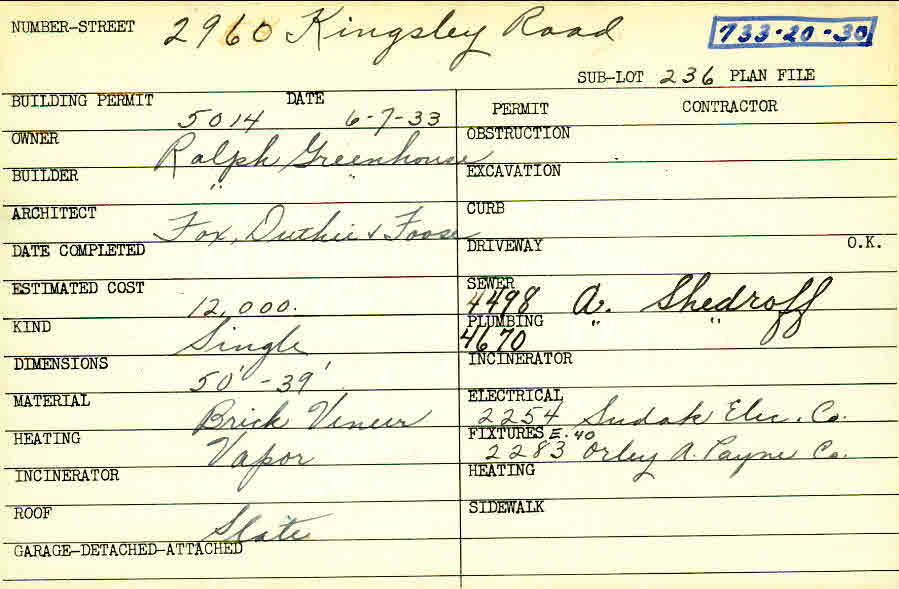 NUMBER-STREET 2960 Kingsley Road 733-20-30
SUB-LOT 236 PLAN FILE
BUILDING PERMIT DATE
5014 6-7-33
OWNER Ralph Greenhouse
BUILDER " "
ARCHITECT Fox, Duthie & Foose
DATE COMPLETED
ESTIMATED COST 12,000.
KIND Single
DIMENSIONS 50' - 39'
MATERIAL Brick Veneer
HEATING Vapor
INCINERATOR
ROOF Slate
GARAGE-DETACHED-ATTACHED
PERMIT CONTRACTOR
OBSTRUCTION
EXCAVATION
CURB
DRIVEWAY O.K.
SEWER
4498 A. Shedroff
PLUMBING " "
4670
INCINERATOR
ELECTRICAL
2254 Sudak Elec. Co.
FIXTURES E. 40
2283 Orley A. Payne Co.
HEATING
SIDEWALK